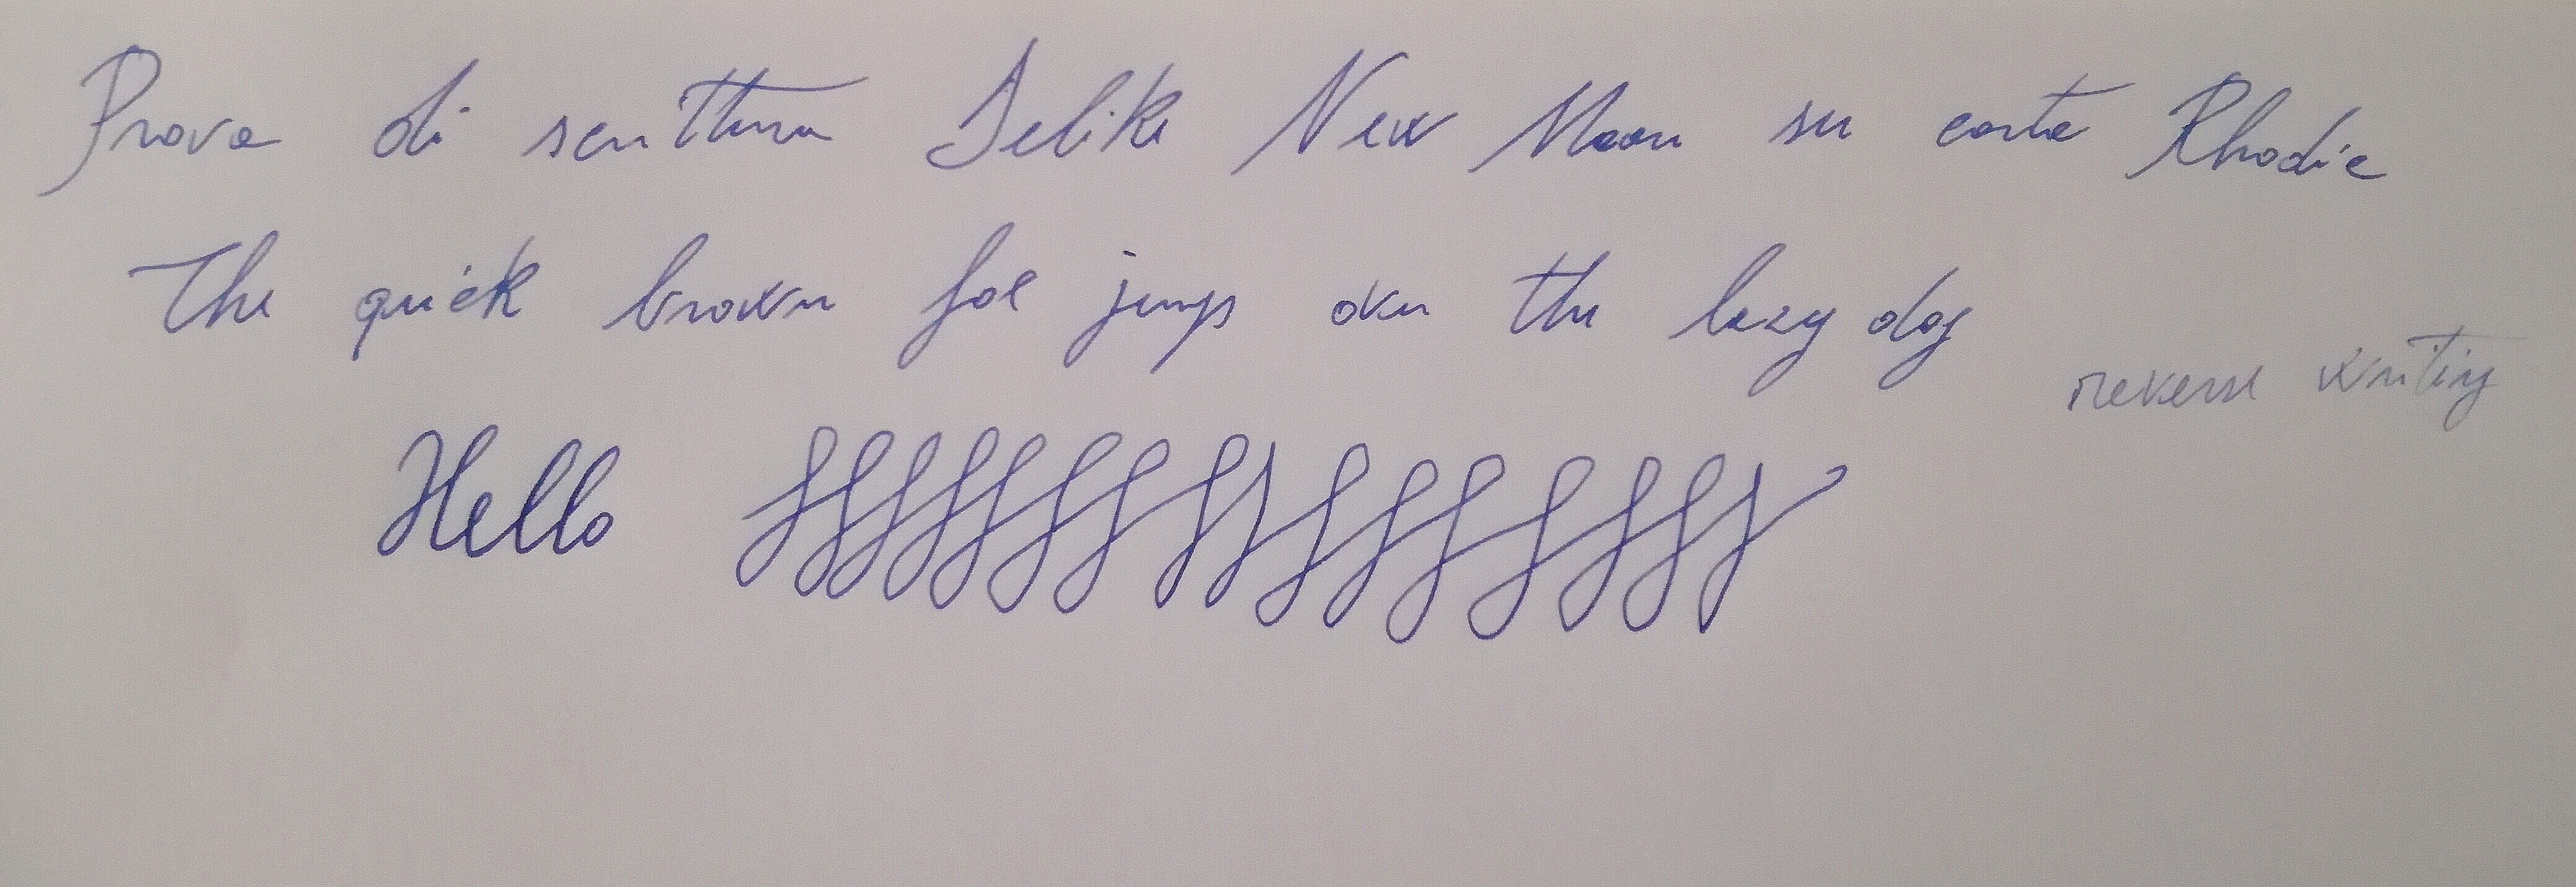 Prova di scrittura Jelike New Moon su carta Rhodia
The quick brown fox jumps over the lazy dog
reverse writing
Hello